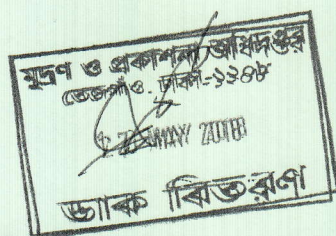 মুদ্রণ ও প্রকাশনা অধিদপ্তর
তেজগাঁও, ঢাকা-১২০৮
MAY
ডাক বিতরণ